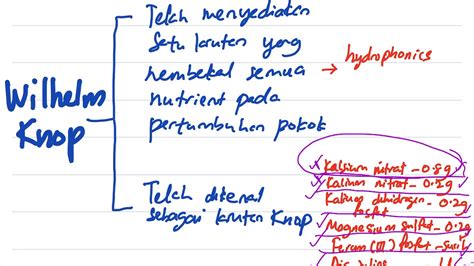 Wilhelm
Knop
Telah menyediakan
satu larutan yang
membekal semua
nutrient pada
pertumbuhan pokok
→ hydrophonics
Telah dikenal
sebagai larutan Knop
Kalsium nitrat – 0.8g
Kalium nitrat – 0.2g
Kalium dihidrogen – 0.2g
fosfat
Magnesium sulfat – 0.2g
Ferum (III) fosfat –